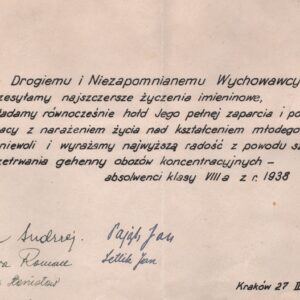 Drogiemu i Niezapomnianemu Wychowawcy
zesyłamy najszczersze życzenia imieninowe,
ładamy równocześnie hołd Jego pełnej zaparcia i po
acy z narażeniem życia nad kształceniem młodego
niewoli i wyrażamy najwyższą radość z powodu sz
zetrwania gehenny obozów koncentracyjnych –
absolwenci klasy VIIIa z r. 1938
Andrzej. Pająk Jan
Roman Letlik Jan
Stanisław
Kraków 27 II